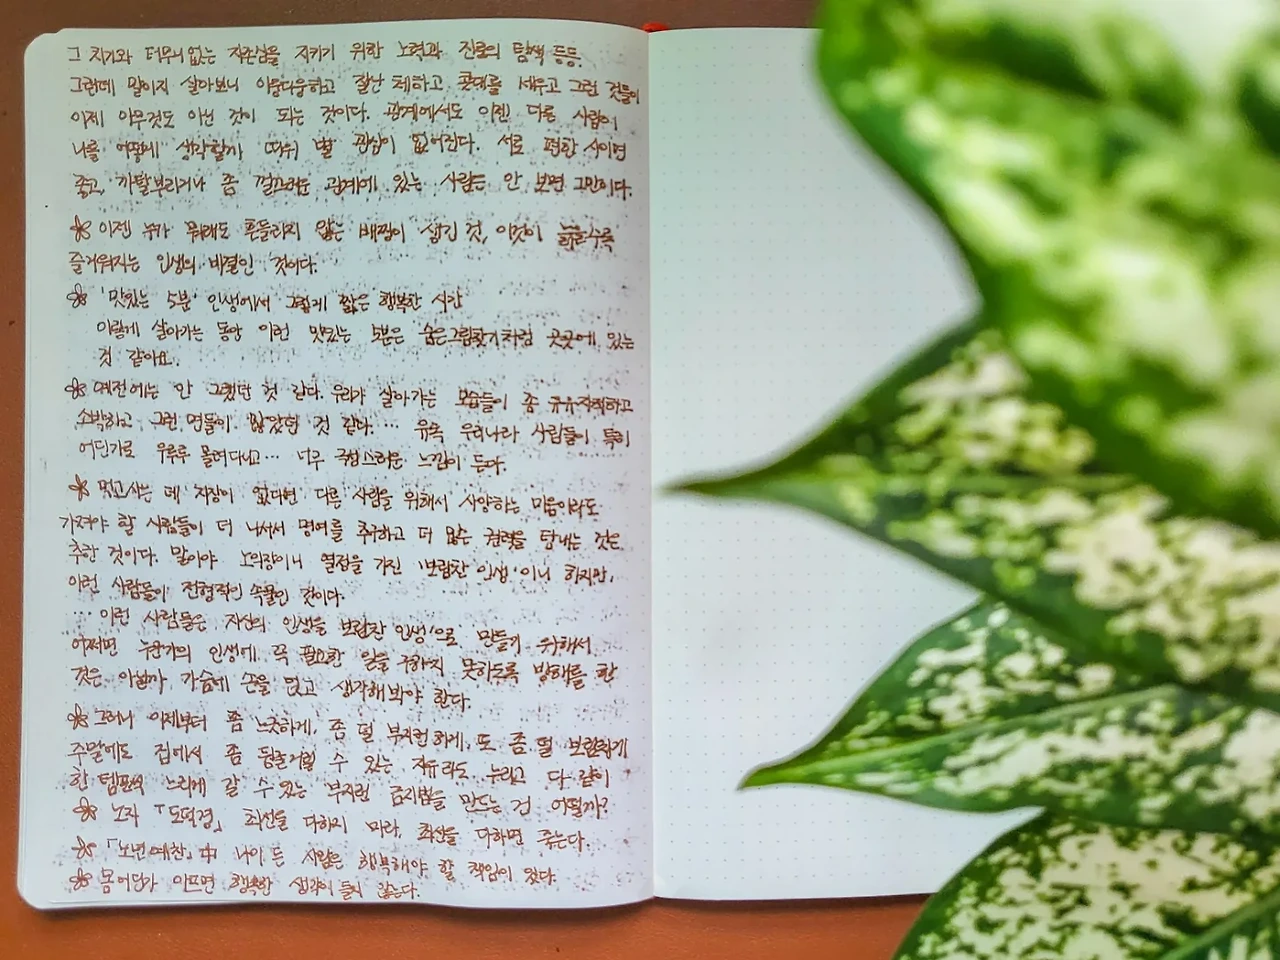 그 치기와 터무니없는 자존심을 지키기 위한 노력과 진로의 탐색 등등.
그런데 말이지 살아보니 아웅다웅하고 잘난 체하고 콧대를 세우고 그런 것들이
이제 아무것도 아닌 것이 되는 것이다. 관계에서도 이젠 다른 사람이
나를 어떻게 생각할까 따위 별 관심이 없어진다. 서로 편한 사이면
좋고, 까탈부리거나 좀 껄끄러운 관계에 있는 사람은 안 보면 그만이다.
이젠 누가 뭐래도 흔들리지 않는 배짱이 생긴 것, 이것이 늙을수록
즐거워지는 인생의 비결인 것이다.
'맛있는 5분' 인생에서 그렇게 짧은 행복한 시간
이렇게 살아가는 동안 이런 맛있는 5분은 숨은그림찾기처럼 곳곳에 있는
것 같아요.
예전에는 안 그랬던 것 같다. 우리가 살아가는 모습들이 좀 유유자적하고
소박하고 그런 면들이 많았던 것 같다.… 유독 우리나라 사람들이 특히
어딘가로 우루루 몰려다니고… 너무 극성스러운 느낌이 든다.
먹고사는 데 지장이 없다면 다른 사람을 위해서 사양하는 마음이라도
가져야 할 사람들이 더 나서서 명예를 추구하고 더 많은 권력을 탐내는 것은
추한 것이다. 말이야 노익장이니 열정을 가진 '보람찬 인생'이니 하지만,
이런 사람들이 전형적인 속물인 것이다.
… 이런 사람들은 자신의 인생을 '보람찬 인생'으로 만들기 위해서
어쩌면 누군가의 인생에 꼭 필요한 일을 구하지 못하도록 방해를 한
것은 아닐까 가슴에 손을 얹고 생각해봐야 한다.
그러니 이제부터 좀 느긋하게, 좀 덜 부지런하게, 또 좀 덜 보람차게
주말에도 집에서 좀 뒹굴거릴 수 있는 자유라도 누리고 다 같이
한 템포씩 느리게 갈 수 있는 부지런 금지법을 만드는 건 어떨까?
노자 「도덕경」 최선을 다하지 마라, 최선을 다하면 죽는다.
「노년예찬」中 나이 든 사람은 행복해야 할 책임이 있다.
몸 어딘가 아프면 행복한 생각이 들지 않는다.